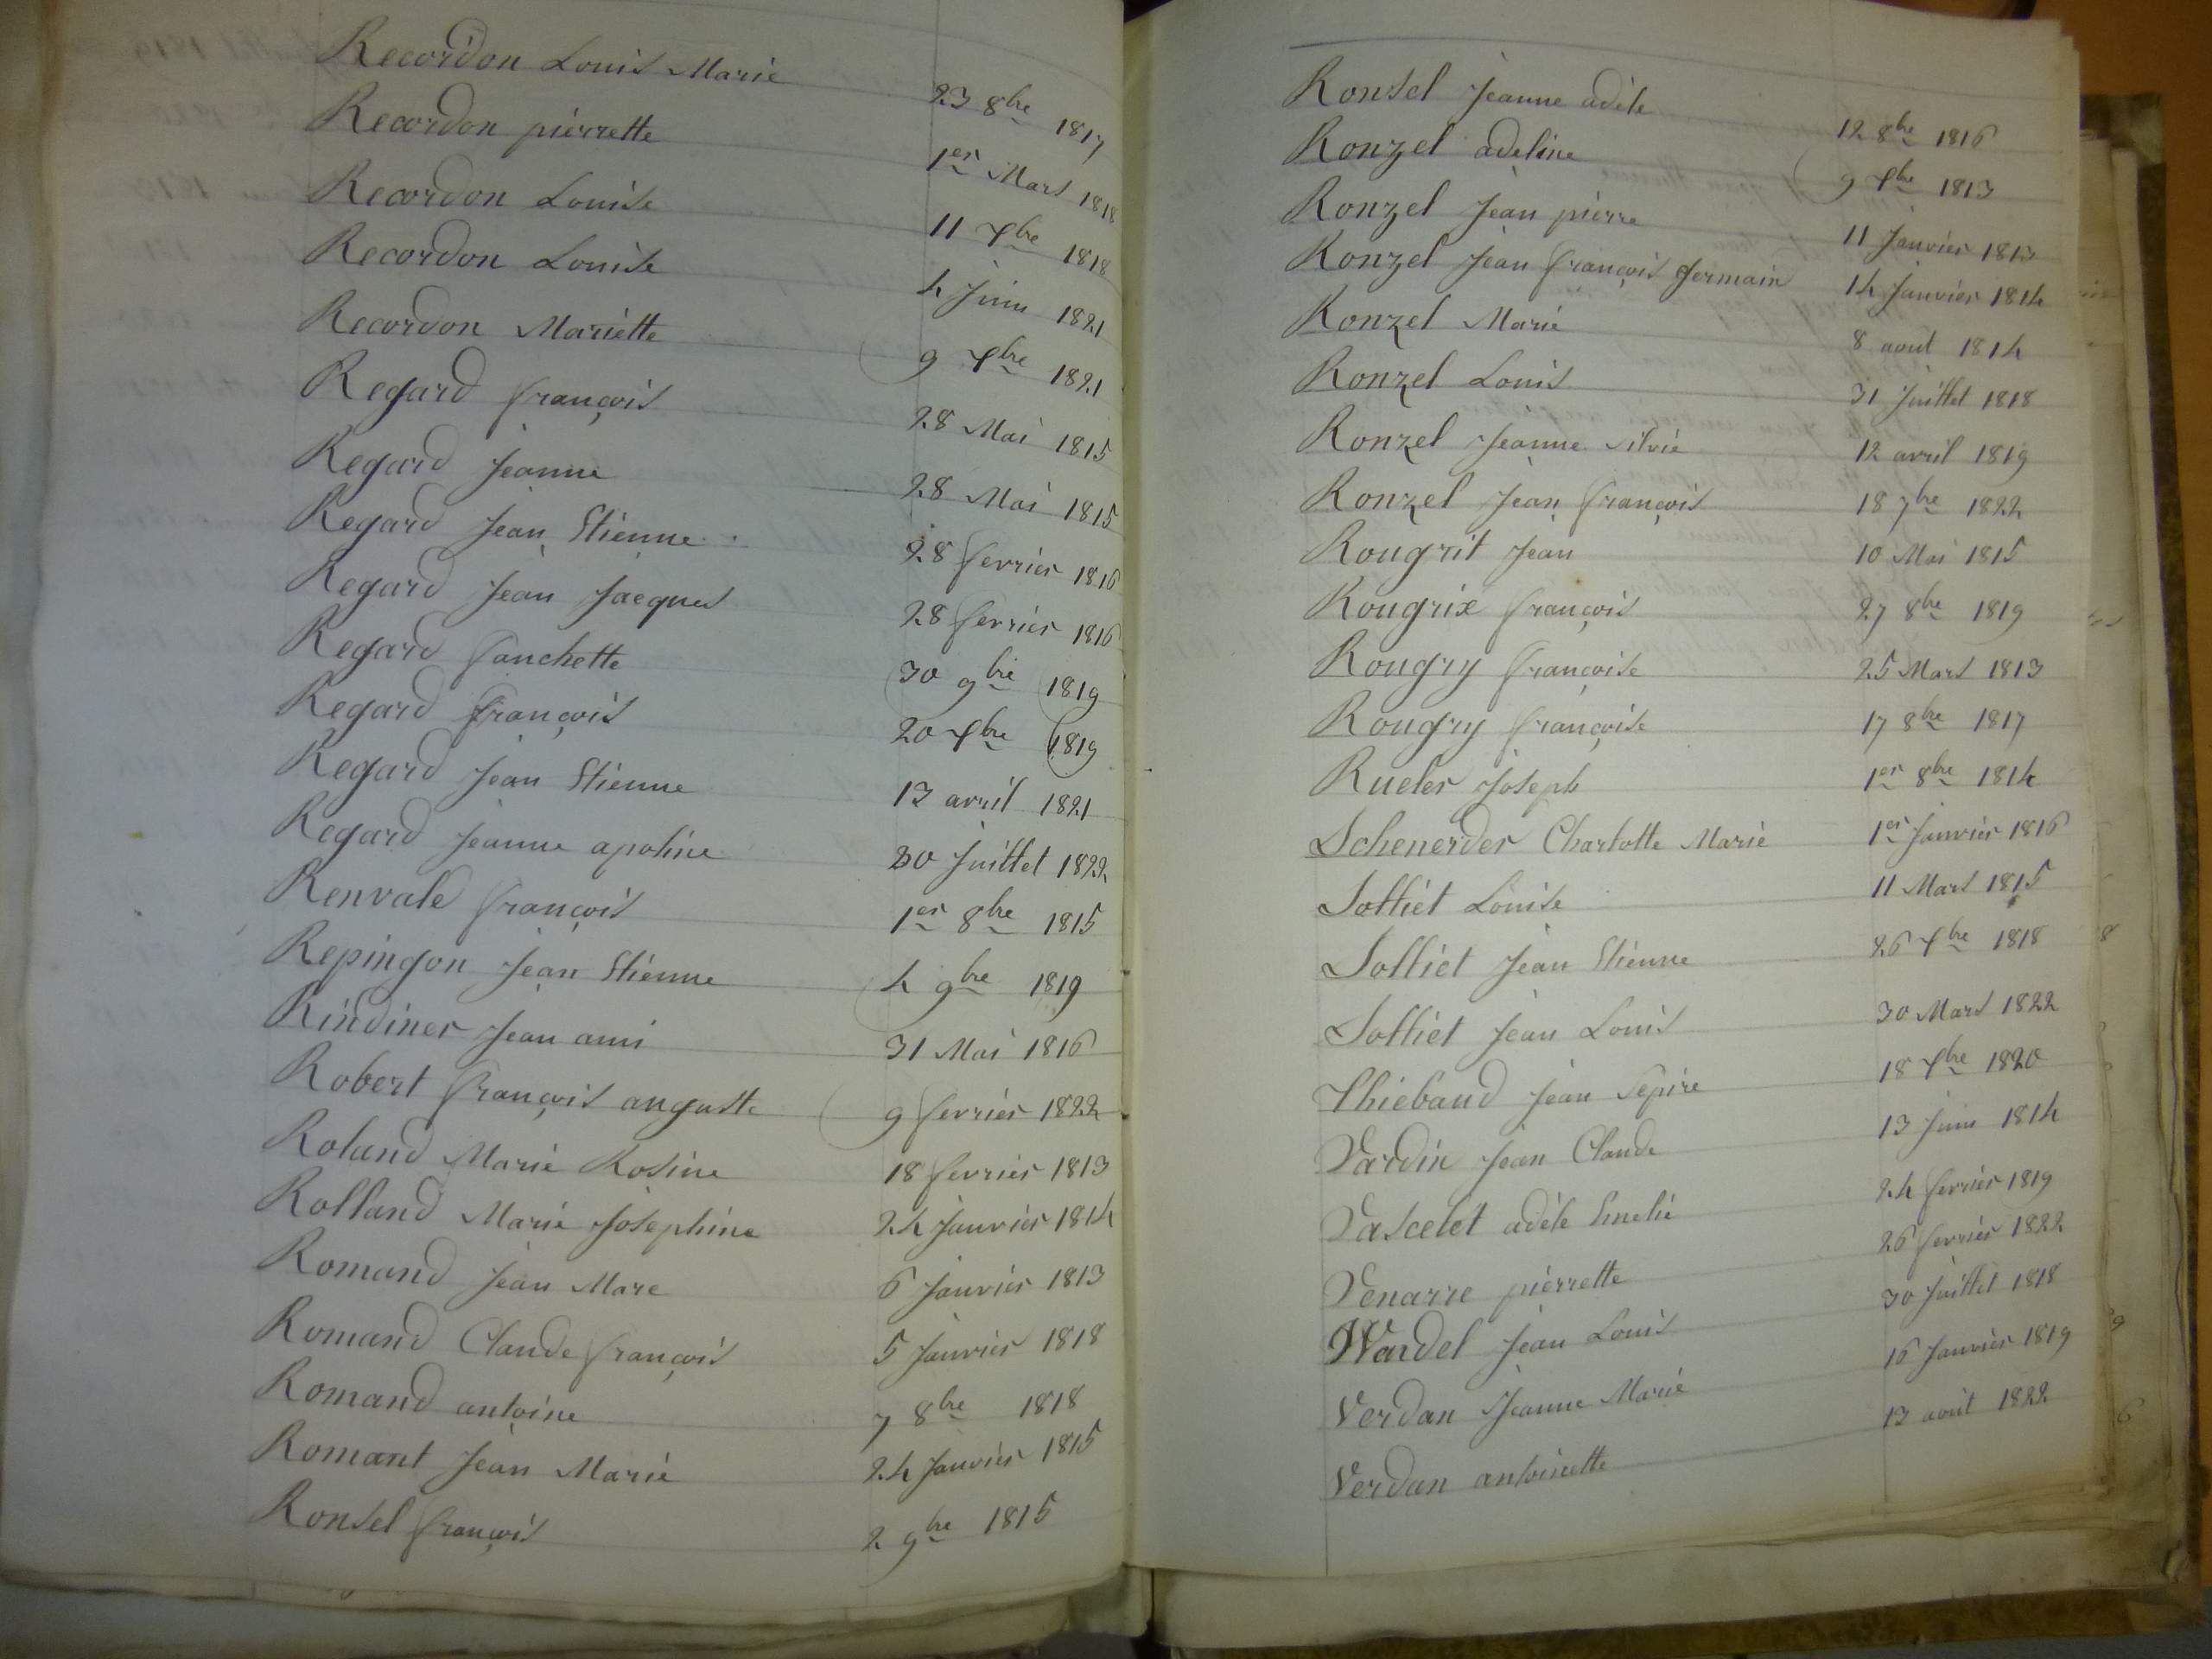 Recordon Louis Marie 23 8bre 1817
Recordon pierrette 1er Mars 1818
Recordon Louise 11 Xbre 1818
Recordon Louise 4 Juin 1821
Recordon Mariette 9 Xbre 1821
Regard françois 28 Mai 1815
Regard Jeanne 28 Mai 1815
Regard Jean Etienne 28 fevrier 1816
Regard Jean Jacques 28 fevrier 1816
Regard fanchette 30 9bre 1819
Regard françois 20 Xbre 1819
Regard Jean Etienne 13 avril 1821
Regard Jeanne apoline 30 Juillet 1822
Renvale françois 1er 8bre 1815
Repingon Jean Etienne 4 9bre 1819
Rindiner Jean ami 31 Mai 1816
Robert françois auguste 9 fevrier 1822
Roland Marie Rosine 18 fevrier 1813
Rolland Marie Josephine 24 Janvier 1814
Romand Jean Marc 6 Janvier 1813
Romand Claude françois 5 Janvier 1818
Romand antoine 7 8bre 1818
Romant Jean Marie 24 Janvier 1815
Ronsel françois 2 9bre 1815
Ronsel Jeanne adèle 12 8bre 1816
Ronzel adeline 9 Xbre 1813
Ronzel Jean pierre 11 Janvier 1813
Ronzel Jean françois Germain 14 Janvier 1814
Ronzel Marie 8 aout 1814
Ronzel Louis 31 Juillet 1818
Ronzel Jeanne Silvie 12 avril 1819
Ronzel Jean françois 18 7bre 1822
Rougrit Jean 10 Mai 1815
Rougrix françois 27 8bre 1819
Rougry françoise 25 Mars 1813
Rougry françoise 17 8bre 1817
Rueler Joseph 1er 8bre 1814
Schenerder Charlotte Marie 1er Janvier 1816
Solliet Louise 11 Mars 1815
Solliet Jean Etienne 26 Xbre 1818
Solliet Jean Louis 30 Mars 1822
Thiebaud Jean Sepire 18 Xbre 1820
Vardin Jean Claude 13 Juin 1814
Vascelet adèle Emelie 24 fevrier 1819
Venarre pierrette 26 fevrier 1822
Wardel Jean Louis 30 Juillet 1818
Verdan Jeanne Marie 16 Janvier 1819
Verdan antoinette 13 août 1822